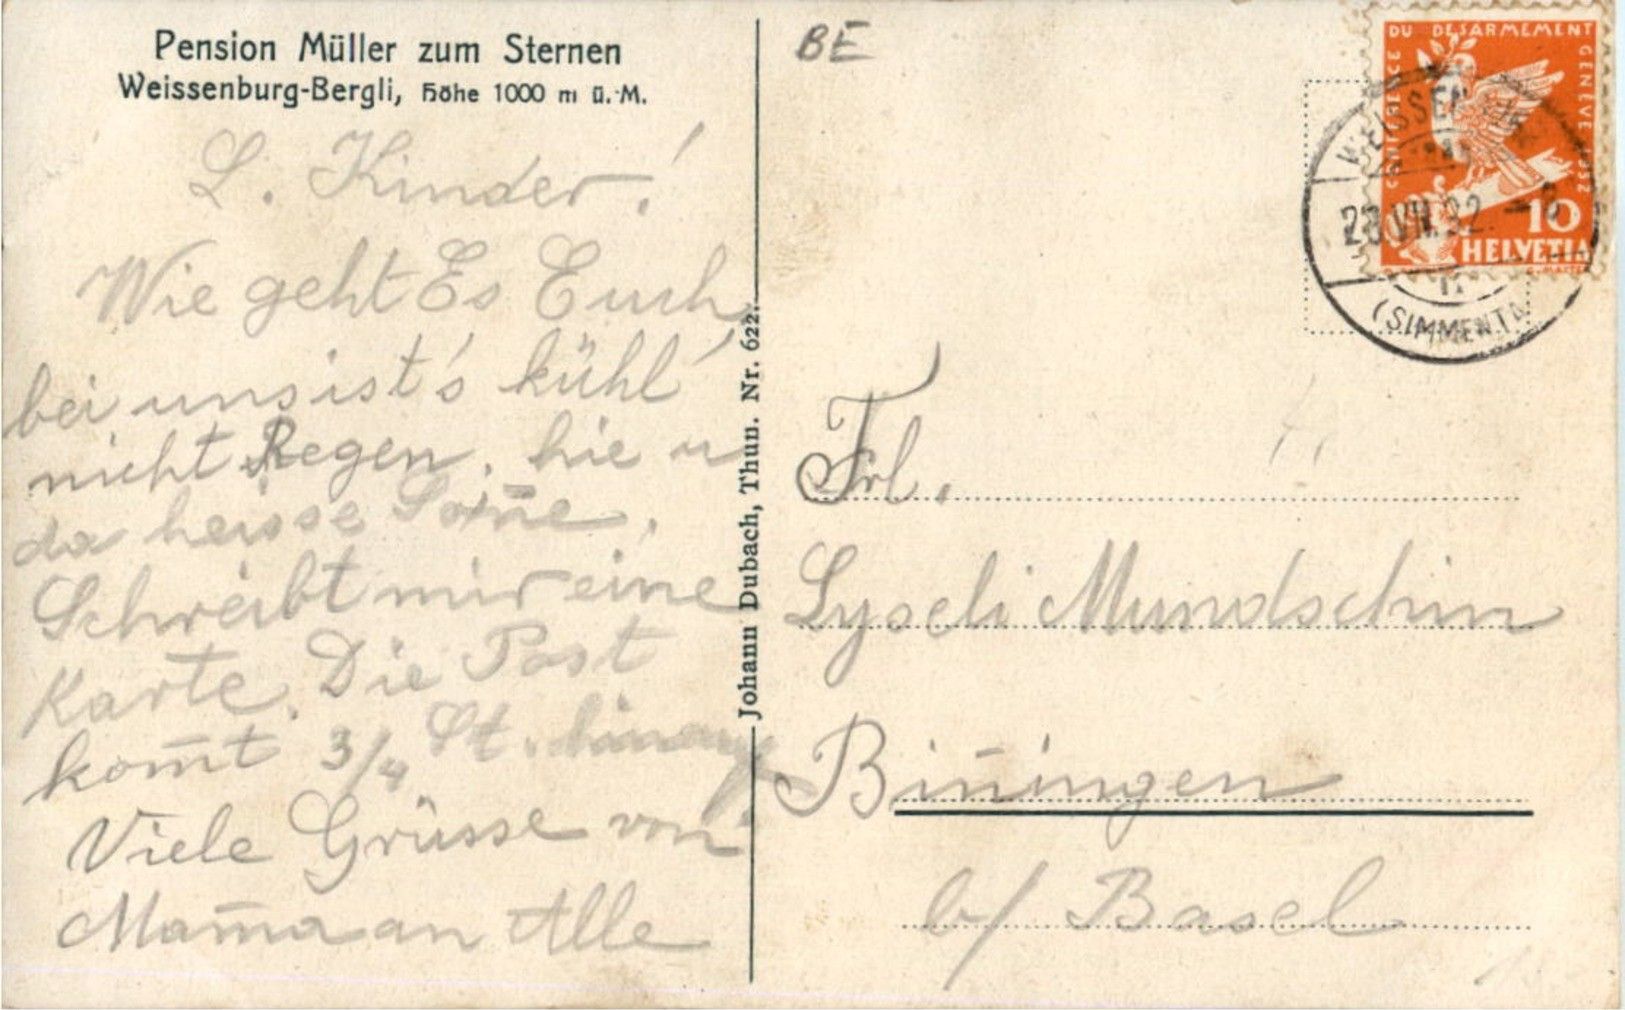 Pension Müller zum Sternen
Weissenburg-Bergli, Höhe 1000 m ü. M.
L. Kinder!
Wie geht Es Euch
bei uns ist's kühl
nicht Regen, hie u
da heisse Son̄e.
Schreibt mir eine
Karte. Die Post
kom̄t 3/4 St. hinauf
Viele Grüsse von
Mam̄a an Alle
Johann Dubach, Thun. Nr. 622.
BE
CONFERENCE DU DESARMEMENT GENEVE 1932
10
HELVETIA
WEISSENBURG
23.VII.32. - 8
(SIMMENTAL)
Frl.
Lyseli Mundschin
Bin̄ingen
b/ Basel